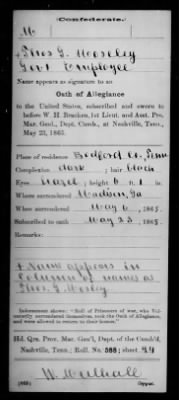 Confederate.
M
+ Thos G. Moseley
Govt Employee
Name appears as signature to an
Oath of Allegiance
to the United States, subscribed and sworn to
before W. H. Bracken, 1st Lieut. and Asst. Pro.
Mar. Genl., Dept. Cumb., at Nashville, Tenn.,
May 23, 1865.
Place of residence Bedford Co., Tenn
Complexion dark ; hair black
Eyes Hazel ; height 6 ft. 1 in.
Where surrendered Madison, Ga
When surrendered May 6 , 1865.
Subscribed to oath May 23 , 1865.
Remarks:
+ Name appears in
column of names as
Thos. G. Mosley
Indorsement shows: "Roll of Prisoners of war, who Vol-
untarily surrendered themselves, took the Oath of Allegiance,
and were allowed to return to their homes."
Hd. Qrs. Prov. Mar. Gen'l, Dept. of the Cumb'd,
Nashville, Tenn.; Roll. No. 588; sheet 94
W. Mulhall
Copyist.